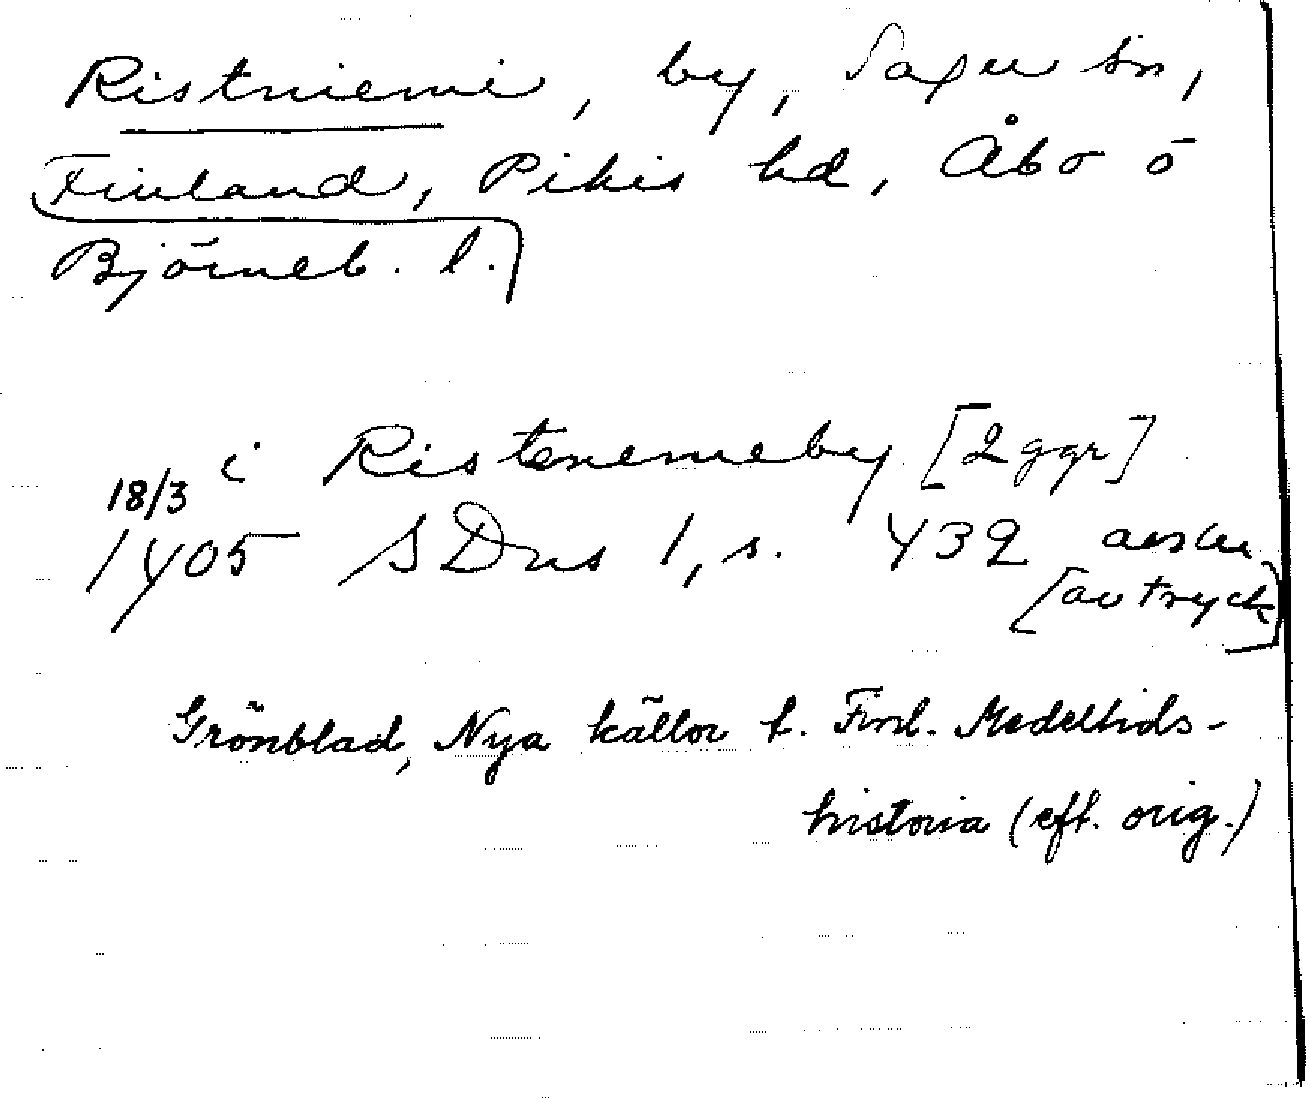 Ristniemi, by, Sagu sn,
Finland, Pikis hd, Åbo o
Björneb. l.
i Ristenemeby [2 ggr]
18/3
1405 SDns 1, s. 432
[av tryck]
Grönblad, Nya källor t. Finl. Medeltids-
historia (eft. orig.)